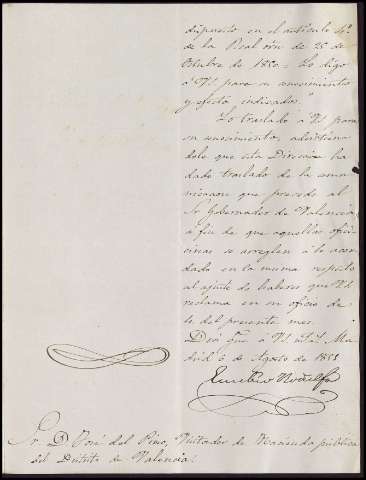 dispuesto en el artículo 4º
de la Real orn de 25 de
Octubre de 1850 = Lo digo
á V.S. para su conocimiento
y efecto indicados."
Lo traslado á V.S. para
su conocimiento, advirtien
dole que esta Direccion ha
dado traslado de la comu
nicacion que precede al
Sr Gobernador de Valencia
á fin de que aquellas ofi
cinas se arreglen á lo acor
dado en la misma respecto
al ajuste de haberes que V.S.
reclama en su oficio de
1º del presente mes.
Dios gue á V.S. m.s a.s Ma
drid 6 de Agosto de 1851
Sr. D. José del Pino, Visitador de Hacienda pública
del Distrito de Valencia.